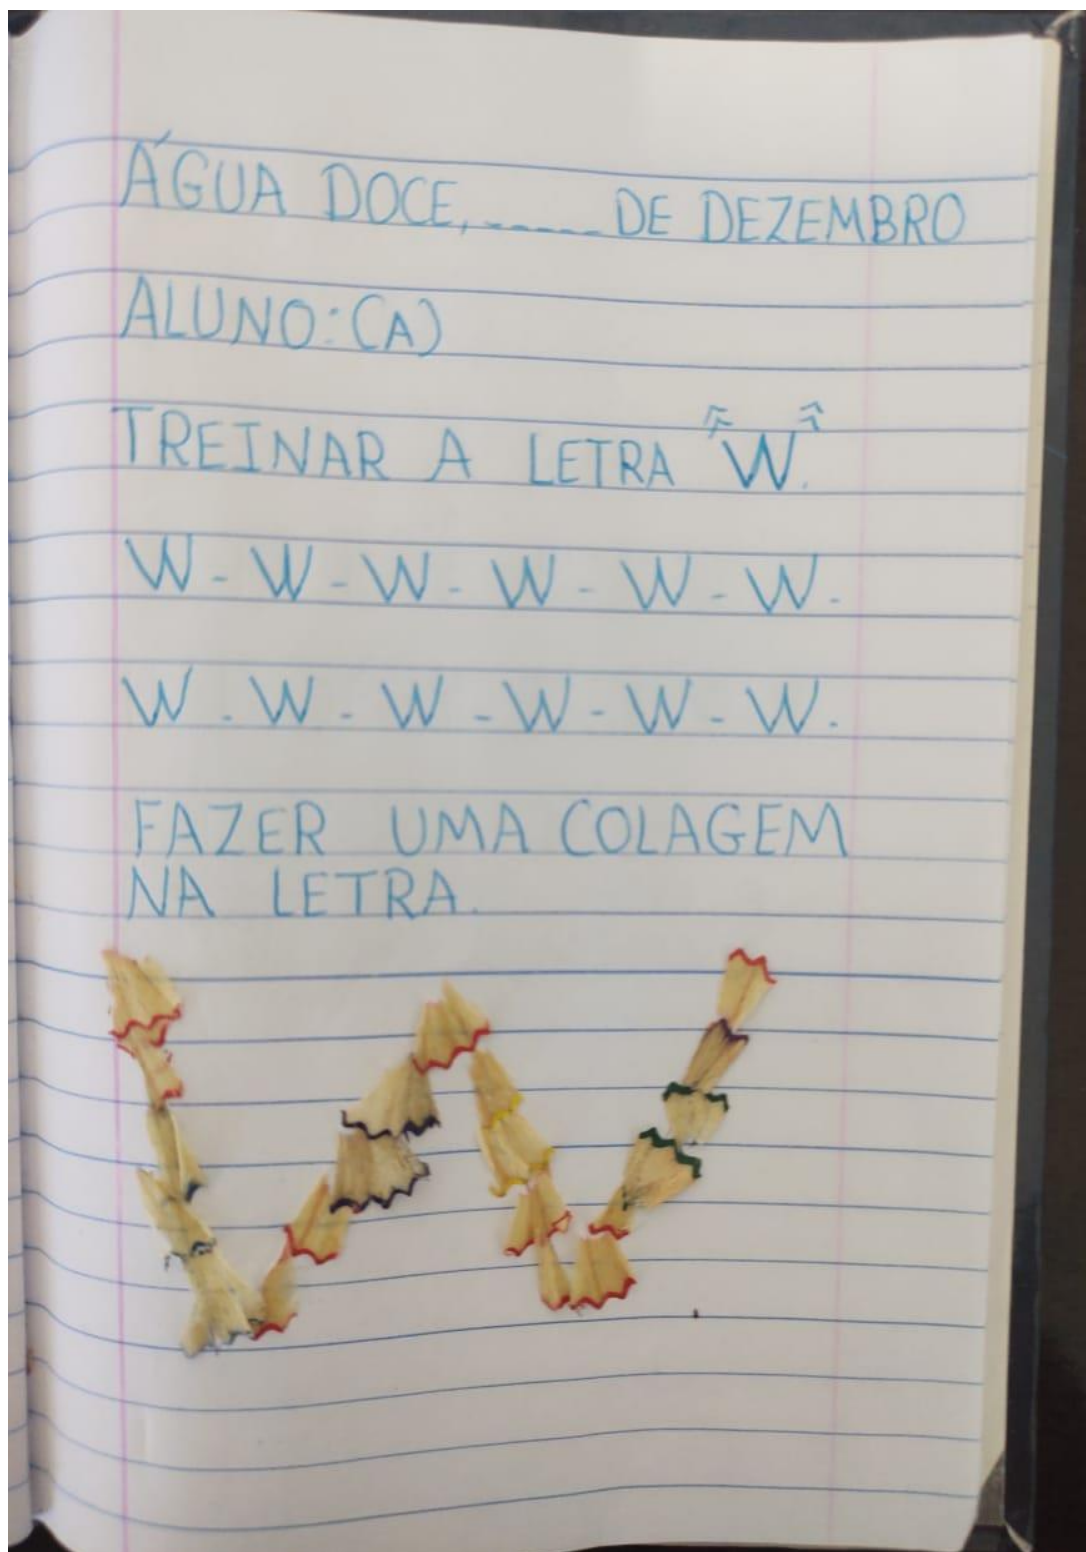 ÁGUA DOCE, ----- DE DEZEMBRO
ALUNO:(A)
TREINAR A LETRA "W".
W - W - W - W - W - W.-
W - W - W - W - W - W.-
FAZER UMA COLAGEM
NA LETRA.
W